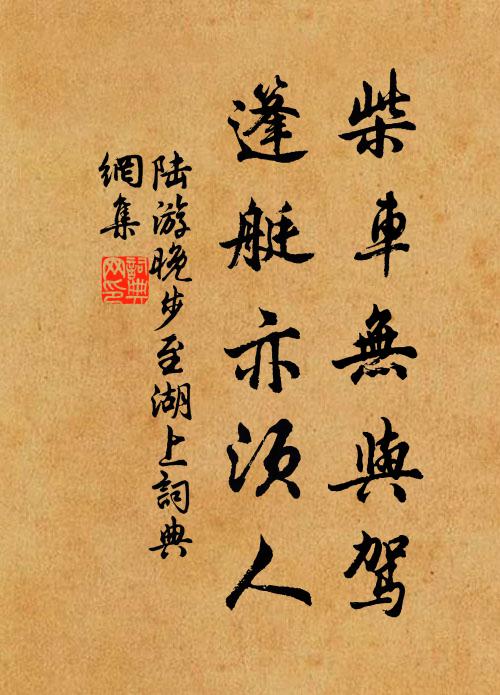 柴車無與駕
蓬艇亦須人
陸游晚步至湖上詞典
網集
詞典
網印